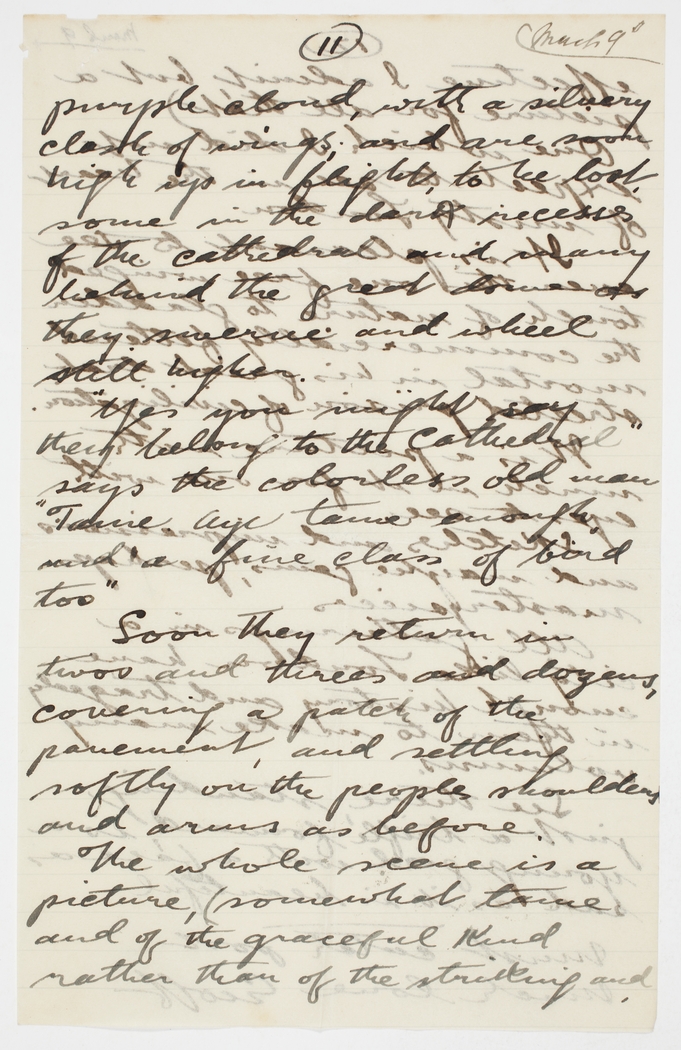 11
March 9th
purple cloud, with a silvery
clash of wings, and are soon
high up in flight, to be lost,
some in the dark recesses
of the cathedral and many
behind the great dome as
they swerve and wheel
still higher.
"Yes you might say
they belong to the Cathedral"
says the colorless old man
"Tame, aye tame enough,
and a fine class of bird
too"
Soon they return in
twos and threes and dozens,
covering a patch of the
pavement, and settling
softly on the people shoulders
and arms as before.
The whole scene is a
picture, (somewhat tame
and of the graceful kind
rather than of the striking and